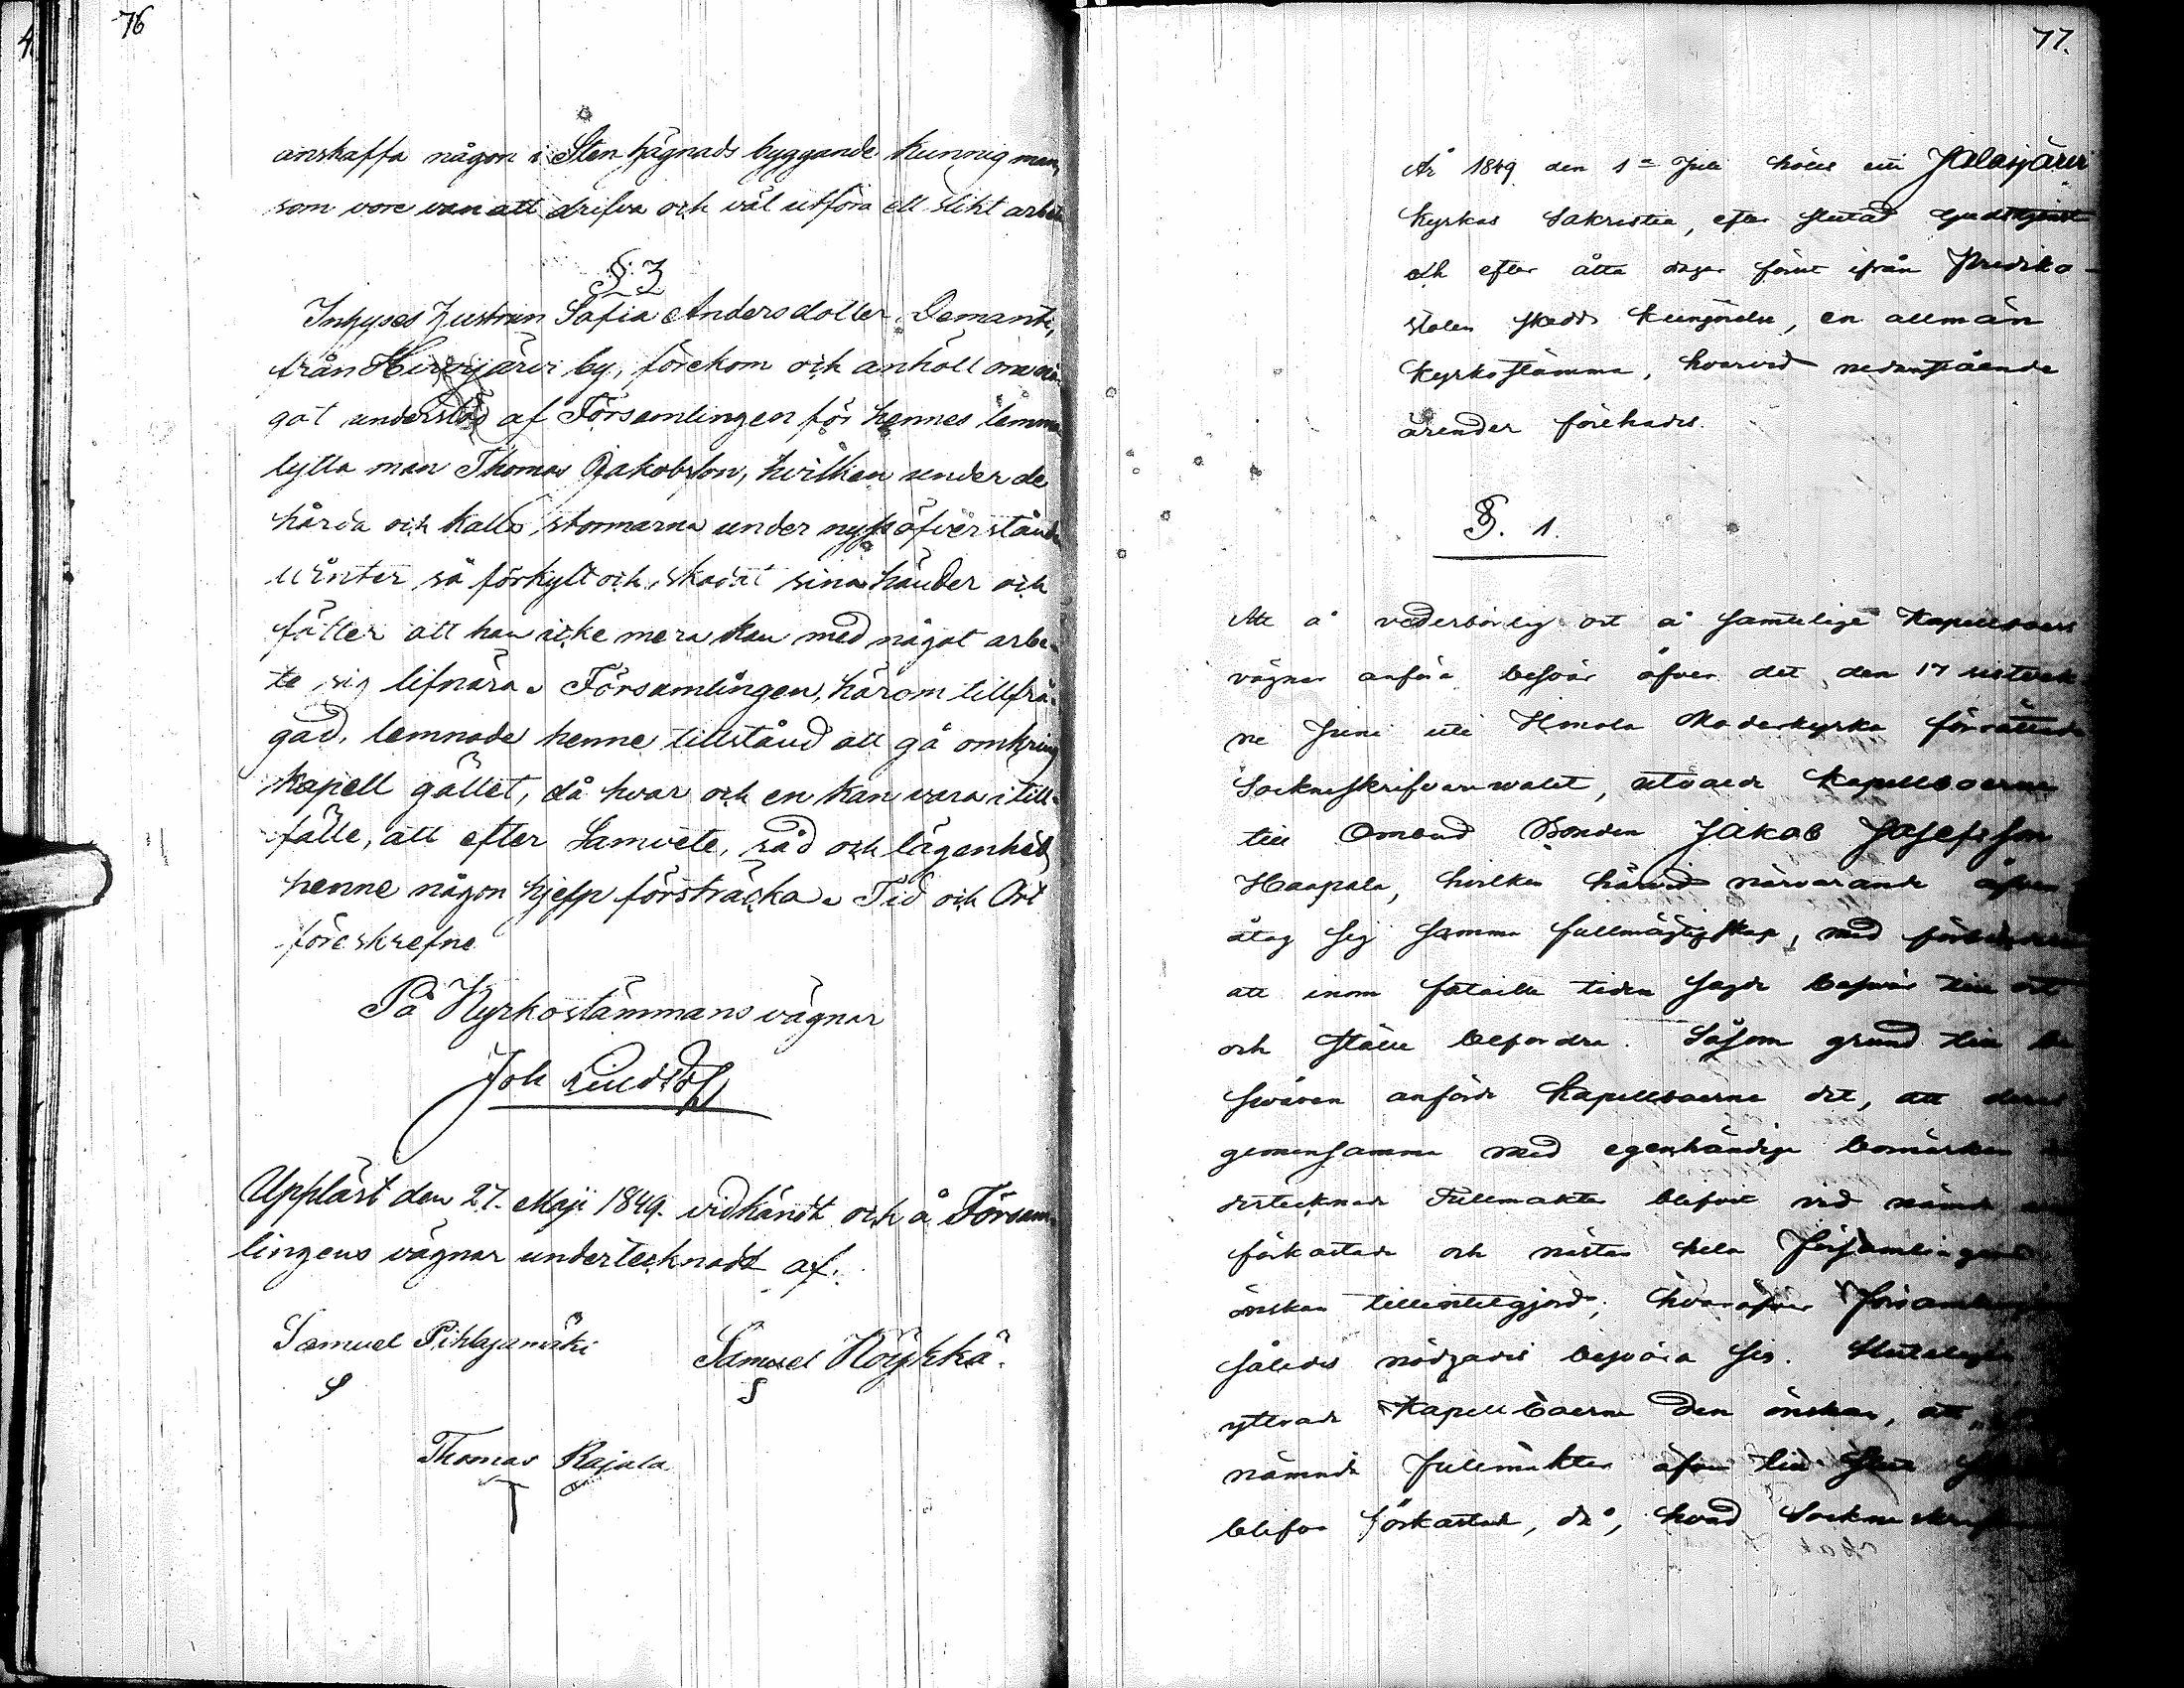 76
anskaffa någon i Sten hägnads byggande kunnig man,
som vore van att drifva och väl utföra ett slikt arbete
§ 3
Inhyses hustrun Safia Andersdotter Demant,
från Hirvijärvi by, förekom och anhöll om nå-
got understöd af Församlingen för hennes lemma
lytta man Thomas Jakobsson, hvilken under de
hårda och kalla stormarna under nyss öfverstånd
winter så förkylt och skadat sina händer och
fötter att han icke mera kan med något arbe-
te sig lifnära. Församlingen, härom tillfrå-
gad, lemnade henne tillstånd att gå omkring
kapell gället, då hvar och en kan vara i till-
fälle, att efter Samvete, råd och lägenhet
henne någon hjelp försträcka. Tid och Ort
föreskrefne
På Kyrkostämmans vägnar
Joh
Uppläst den 27. Maji 1849. vidkändt och å Försam-
lingens vägnar undertecknadt af.
Samuel Pihlajamäki
Samuel Köykkä.
S
S
Thomas Rajala
T
77.
År 1849 den 1= Juli hölls uti Jalasjärvi
Kyrkas Sakristia, efter slutad Gudstjenst
och efter åtta dagar förut ifrån Prediko-
stolen skedd kungörelse, en allmän
Kyrkostämma, hvarvid nedanstående
ärender förehades.
§. 1.
Att å vederbörlig ort å samtelige Kapellboers
vägnar anföra besvär öfver det, den 17 sistvek
ne Juni uti Ilmola Moderkyrka förrättade
Sockneskrifvarevalet, utvalde Kapellboerne
till Ombud Bonden Jakob Josefsson
Haapala, hvilken härvid närvarande äfven
åtog sig samma fullmägtigskap, med
att inom fataille tiden sagde besvär till ort
och ställe befordra. Såsom grund till be
svären anförde Kapellboerne det, att deras
gemensamma med egenhändiga bomärken
dertecknade Fullmakter blifvit vid nämde
förkastade och nästan hela Församlingens
önskan tillintetgjord; hvaröfver Församlingen
således nödgades besvära sig. Sluteligen
yttrade Kapellboerne den önskan, att
nämnde fullmakter äfven
blifva förkastade, då, hvad Sockneskrifvare